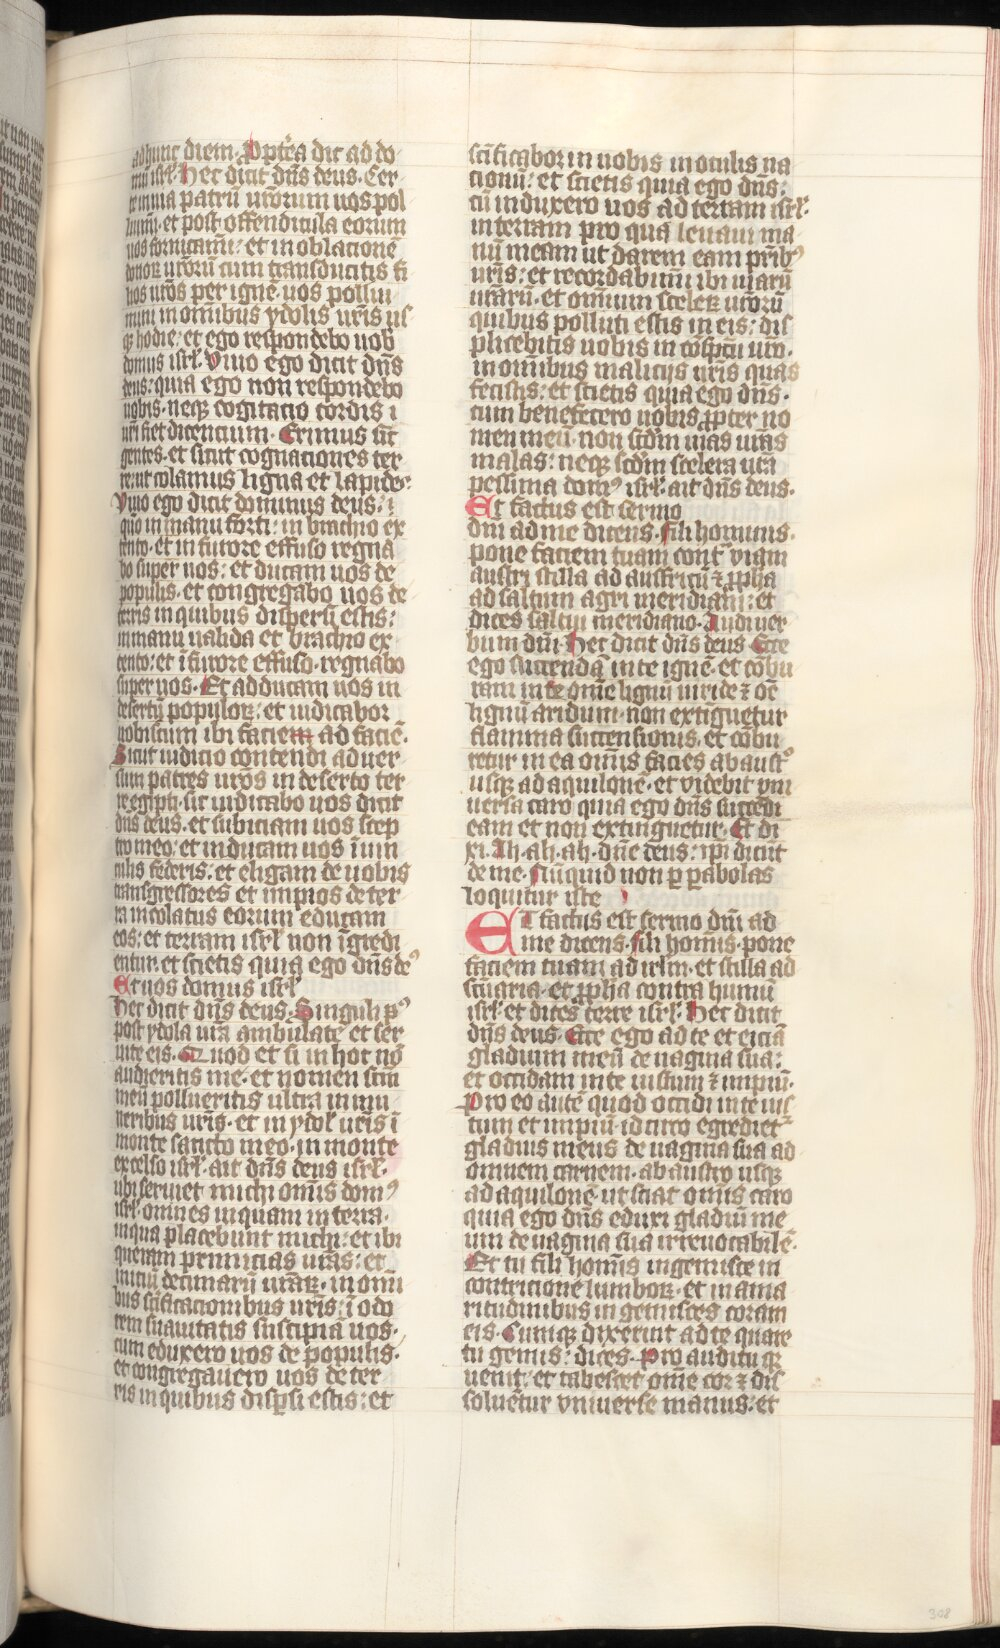 ad hunc diem. Propt̄ea dic ad do
mū isrl̄. Hec dicit dn̄s deus. Cer
te in uia patrū ur̄orum uos pol
luimī. et post offendicula eorum
uos fornicamī: et in oblacionē
donoꝝ ur̄orū cum transducitis fi
lios ur̄os per ignē. uos pollui
mini in omnibus ydolis ur̄is us
qꝫ hodie: et ego respondebo uob̄
domus isrl̄. Viuo ego dicit dn̄s
deus: quia ego non respondebo
uobis. neqꝫ cogitacio cordis i
ur̄i fiet dicencium. Erimus sic̄
gentes. et sicut cognaciones ter
re: ut colamus ligna et lapides.
Viuo ego dicit dominus deus: i
quo in manu forti: in brachio ex
tento. et in furore effuso regna
bo super uos: et ducam uos de
populis. et congregabo uos de
terris in quibus dispersi estis:
in manu ualida et brachio ex
tento: et ī furore effuso. regnabo
super uos. Et adducam uos in
desertū populoꝝ: et iudicabor
uobiscum ibi faciem ad faciē.
Sicut iudicio contendi aduer
sum patres ur̄os in deserto ter
re egipti. sic iudicabo uos dicit
dn̄s deus. et subiciam uos scep
tro meo: et inducam uos ī uin
culis federis: et eligam de uobis
transgressores et impios de ter
ra incolatus eorum educam
eos: et terram isrl̄ non īgredi
entur. et scietis quia ego dn̄s de9
Et uos domus isrl̄
Hec dicit dn̄s deus. Singuli p9
post ydola ur̄a ambulate et ser
uite eis. Quod et si in hoc nō
audieritis me. et nomen scm̄
meū pollueritis ultra in mu
neribus ur̄is. et in ydol̄ ur̄is ī
monte sancto meo. in monte
excelso isrl̄. ait dn̄s deus isrl̄.
ubi seruiet michi om̄is dom9
isrl̄. omnes inquam in terra.
in qua placebunt michi: et ibi
queram primicias ur̄as: et
iniciū decimarū ur̄aꝝ. in omi
bus sc̄ificacionibus ur̄is: ī odo
rem suauitatis suscipiā uos.
cum eduxero uos de populis.
et congregauero uos de ter
ris in quibus disp̄si estis: et
sc̄ificabor in uobis in oculis na
cionū: et scietis quia ego dn̄s:
cū induxero uos ad terram isrl̄.
in terram pro qua leuaui ma
nū meam ut darem eam pr̄ib9
ur̄is: et recordabimī ibi uiarū
ur̄arū. et omnium sceleꝝ ur̄orū
quibus polluti estis in eis: dis
plicebitis uobis in cōspc̄tu ur̄o.
in omībus malicijs ur̄is quas
fecistis: et scietis quia ego dn̄s.
cum benefecero uobis propter no
men meū. non scd̄m uias ur̄as
malas: neqꝫ scd̄m scelera ur̄a
pessima dom9 isrl̄. ait dn̄s deus.
Et factus est sermo
dn̄i ad me dicens. Fili hominis.
pone faciem tuam cont̄ viam
austri stilla ad affricū ⁊ ꝓpha
ad saltum agri meridiani: et
dices saltui meridiano. Audi uer
bum dn̄i. Hec dicit dn̄s deus Ecce
ego succendā in te ignē. et cōbu
ram in te om̄e lignū uiride ⁊ oē
lignū aridum. non extinguetur
flamma succensionis. et cōbu
retur in ea om̄is facies ab aust9
usqꝫ ad aquilonē. et videbit vni
uersa caro quia ego dn̄s succedi
eam et non extinguetur. Et di
xi. Ah. ah. ah. dn̄e deus: ip̄i dicūt
de me. Nūquid non ꝑ ꝑabolas
loquitur iste
Et factus est sermo dn̄i ad
me dicens. fili homīs. pone
faciem tuam ad irl̄m. et stilla ad
sc̄uaria. et ꝓpha contra humū
isrl̄. et dices terre isrl̄. Hec dicit
dn̄s deus. Ecce ego ad te et eiciā
gladium meū de uagina sua:
et occidam in te iustum ⁊ impiū.
Pro eo autē quod occidi in te ius
tum et impiū. idcirco egrediet̄
gladius meus de uagina sua ad
omnem carnem. ab austro usqꝫ
ad aquilonē. ut sciat om̄is caro
quia ego dn̄s eduxi gladiū me
um de uagina sua irreuocabilē.
Et tu fili hom̄is ingemisce in
contricione lumboꝝ. et in ama
ritudinibus ingemisces coram
eis. Cumqꝫ dixerint ad te quare
tu gemis: dices. Pro auditu qꝫ
uenit: et tabescet om̄e cor ⁊ dis
soluētur vniuerse manus: et
308